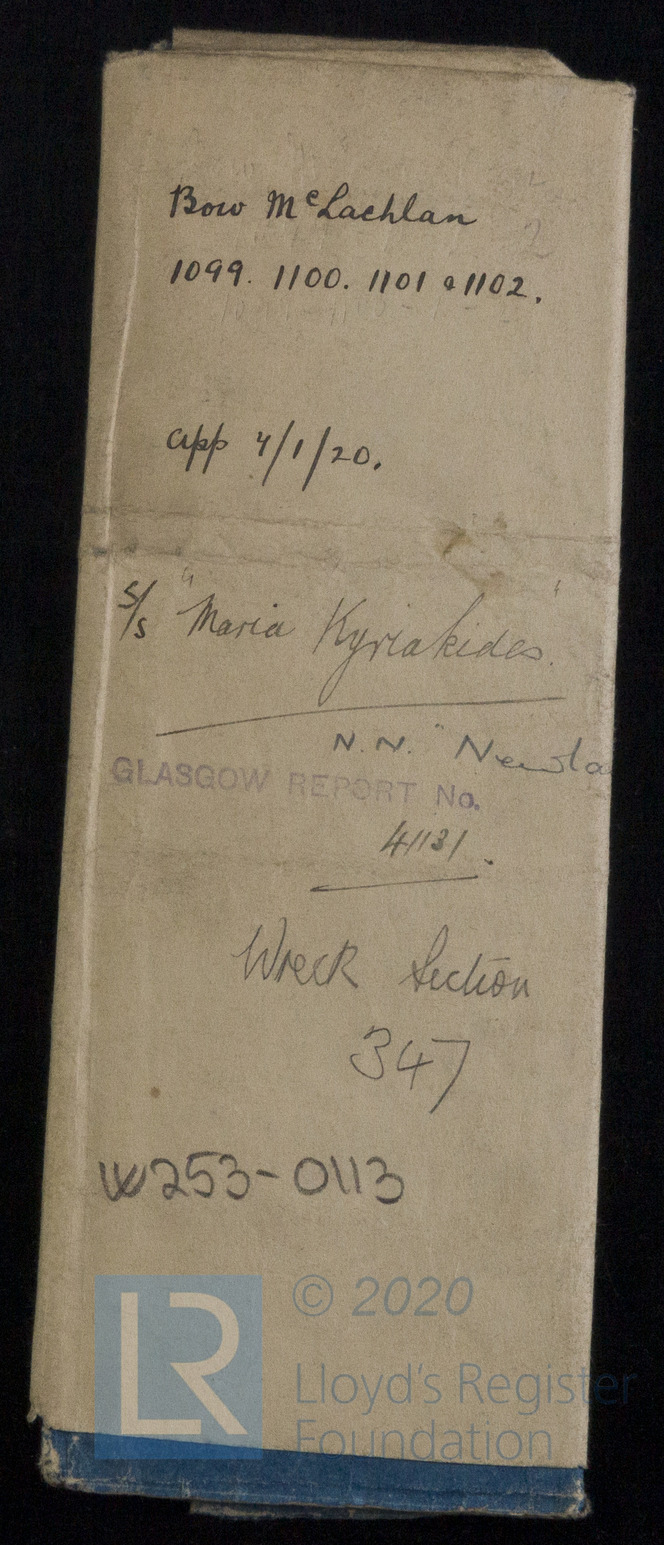 Bow McLachlan
1099. 1100. 1101 & 1102.
app 4/1/20.
S/S "Maria Kyriakides."
N.N. "Newla
GLASGOW REPORT No.
41131.
Wreck Section
347
W253-0113
LR
© 2020
Lloyd's Register
Foundation